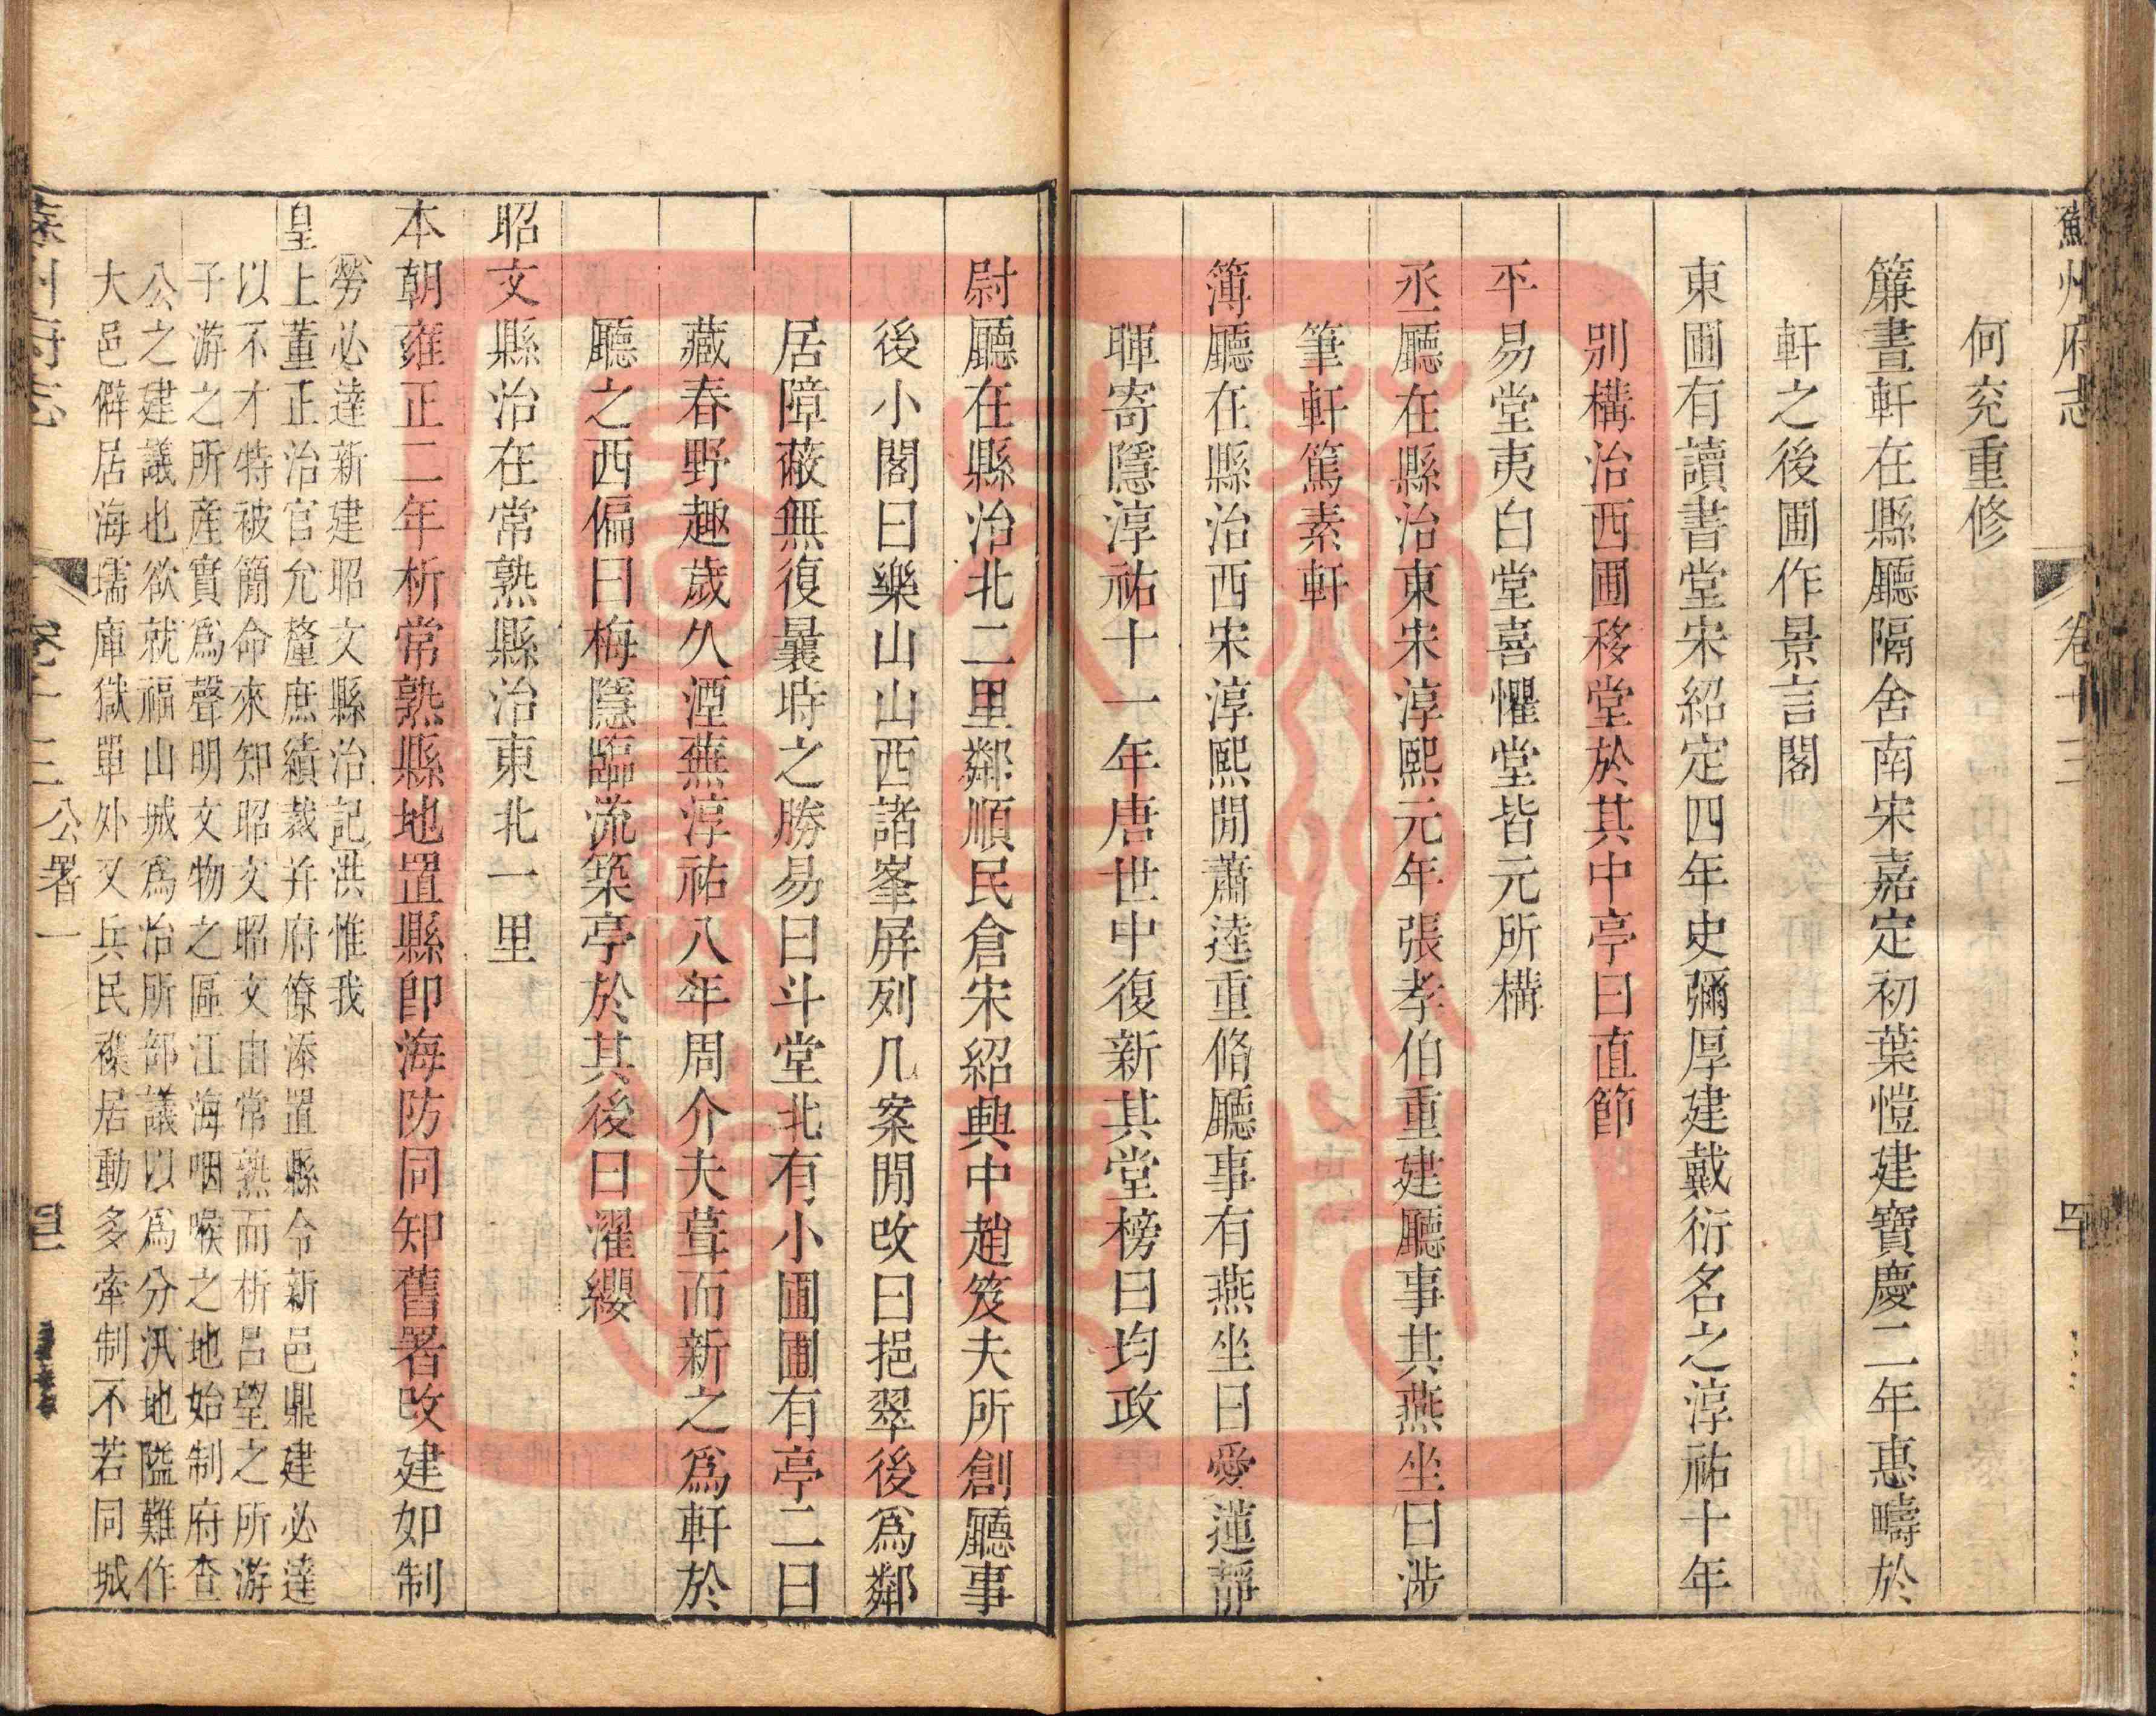 蘇州府志 卷十三
何兖重修
簾晝軒在縣廳隔舍南宋嘉定初葉愷建寶慶二年惠疇於
軒之後圃作景言閣
東圃有讀書堂宋紹定四年史彌厚建戴衍名之淳祐十年
别構治西圃移堂於其中亭曰直節
平易堂夷白堂喜懼堂皆元所構
丞廳在縣治東宋淳熙元年張孝伯重建廳事其燕坐曰涉
筆軒篤素軒
簿廳在縣治西宋淳熙閒蕭逵重脩廳事有燕坐曰愛蓮靜
暉寄隱淳祐十一年唐世中復新其堂榜曰均政
尉廳在縣治北二里鄰順民倉宋紹興中趙笈夫所創廳事
後小閣曰樂山山西諸峯屏列几案閒改曰挹翠後爲鄰
居障蔽無復曩時之勝易曰斗堂北有小圃圃有亭二曰
藏春野趣歲久湮蕪淳祐八年周介夫葺而新之爲軒於
廳之西偏曰梅隱臨流築亭於其後曰濯纓
昭文縣治在常熟縣治東北一里
本朝雍正二年析常熟縣地置縣卽海防同知舊署改建如制
勞必達新建昭文縣治記洪惟我
皇上董正治官允釐庶績裁并府僚添置縣令新邑鼎建必達
以不才特被簡命來知昭文昭文由常熟而析呂望之所游
子游之所產實爲聲明文物之區江海咽喉之地始制府查
公之建議也欲就福山城爲治所部議以爲分汛地隘難作
大邑僻居海壖庫獄單外又兵民襍居動多牽制不若同城
蘇州府志 卷十三 公署一